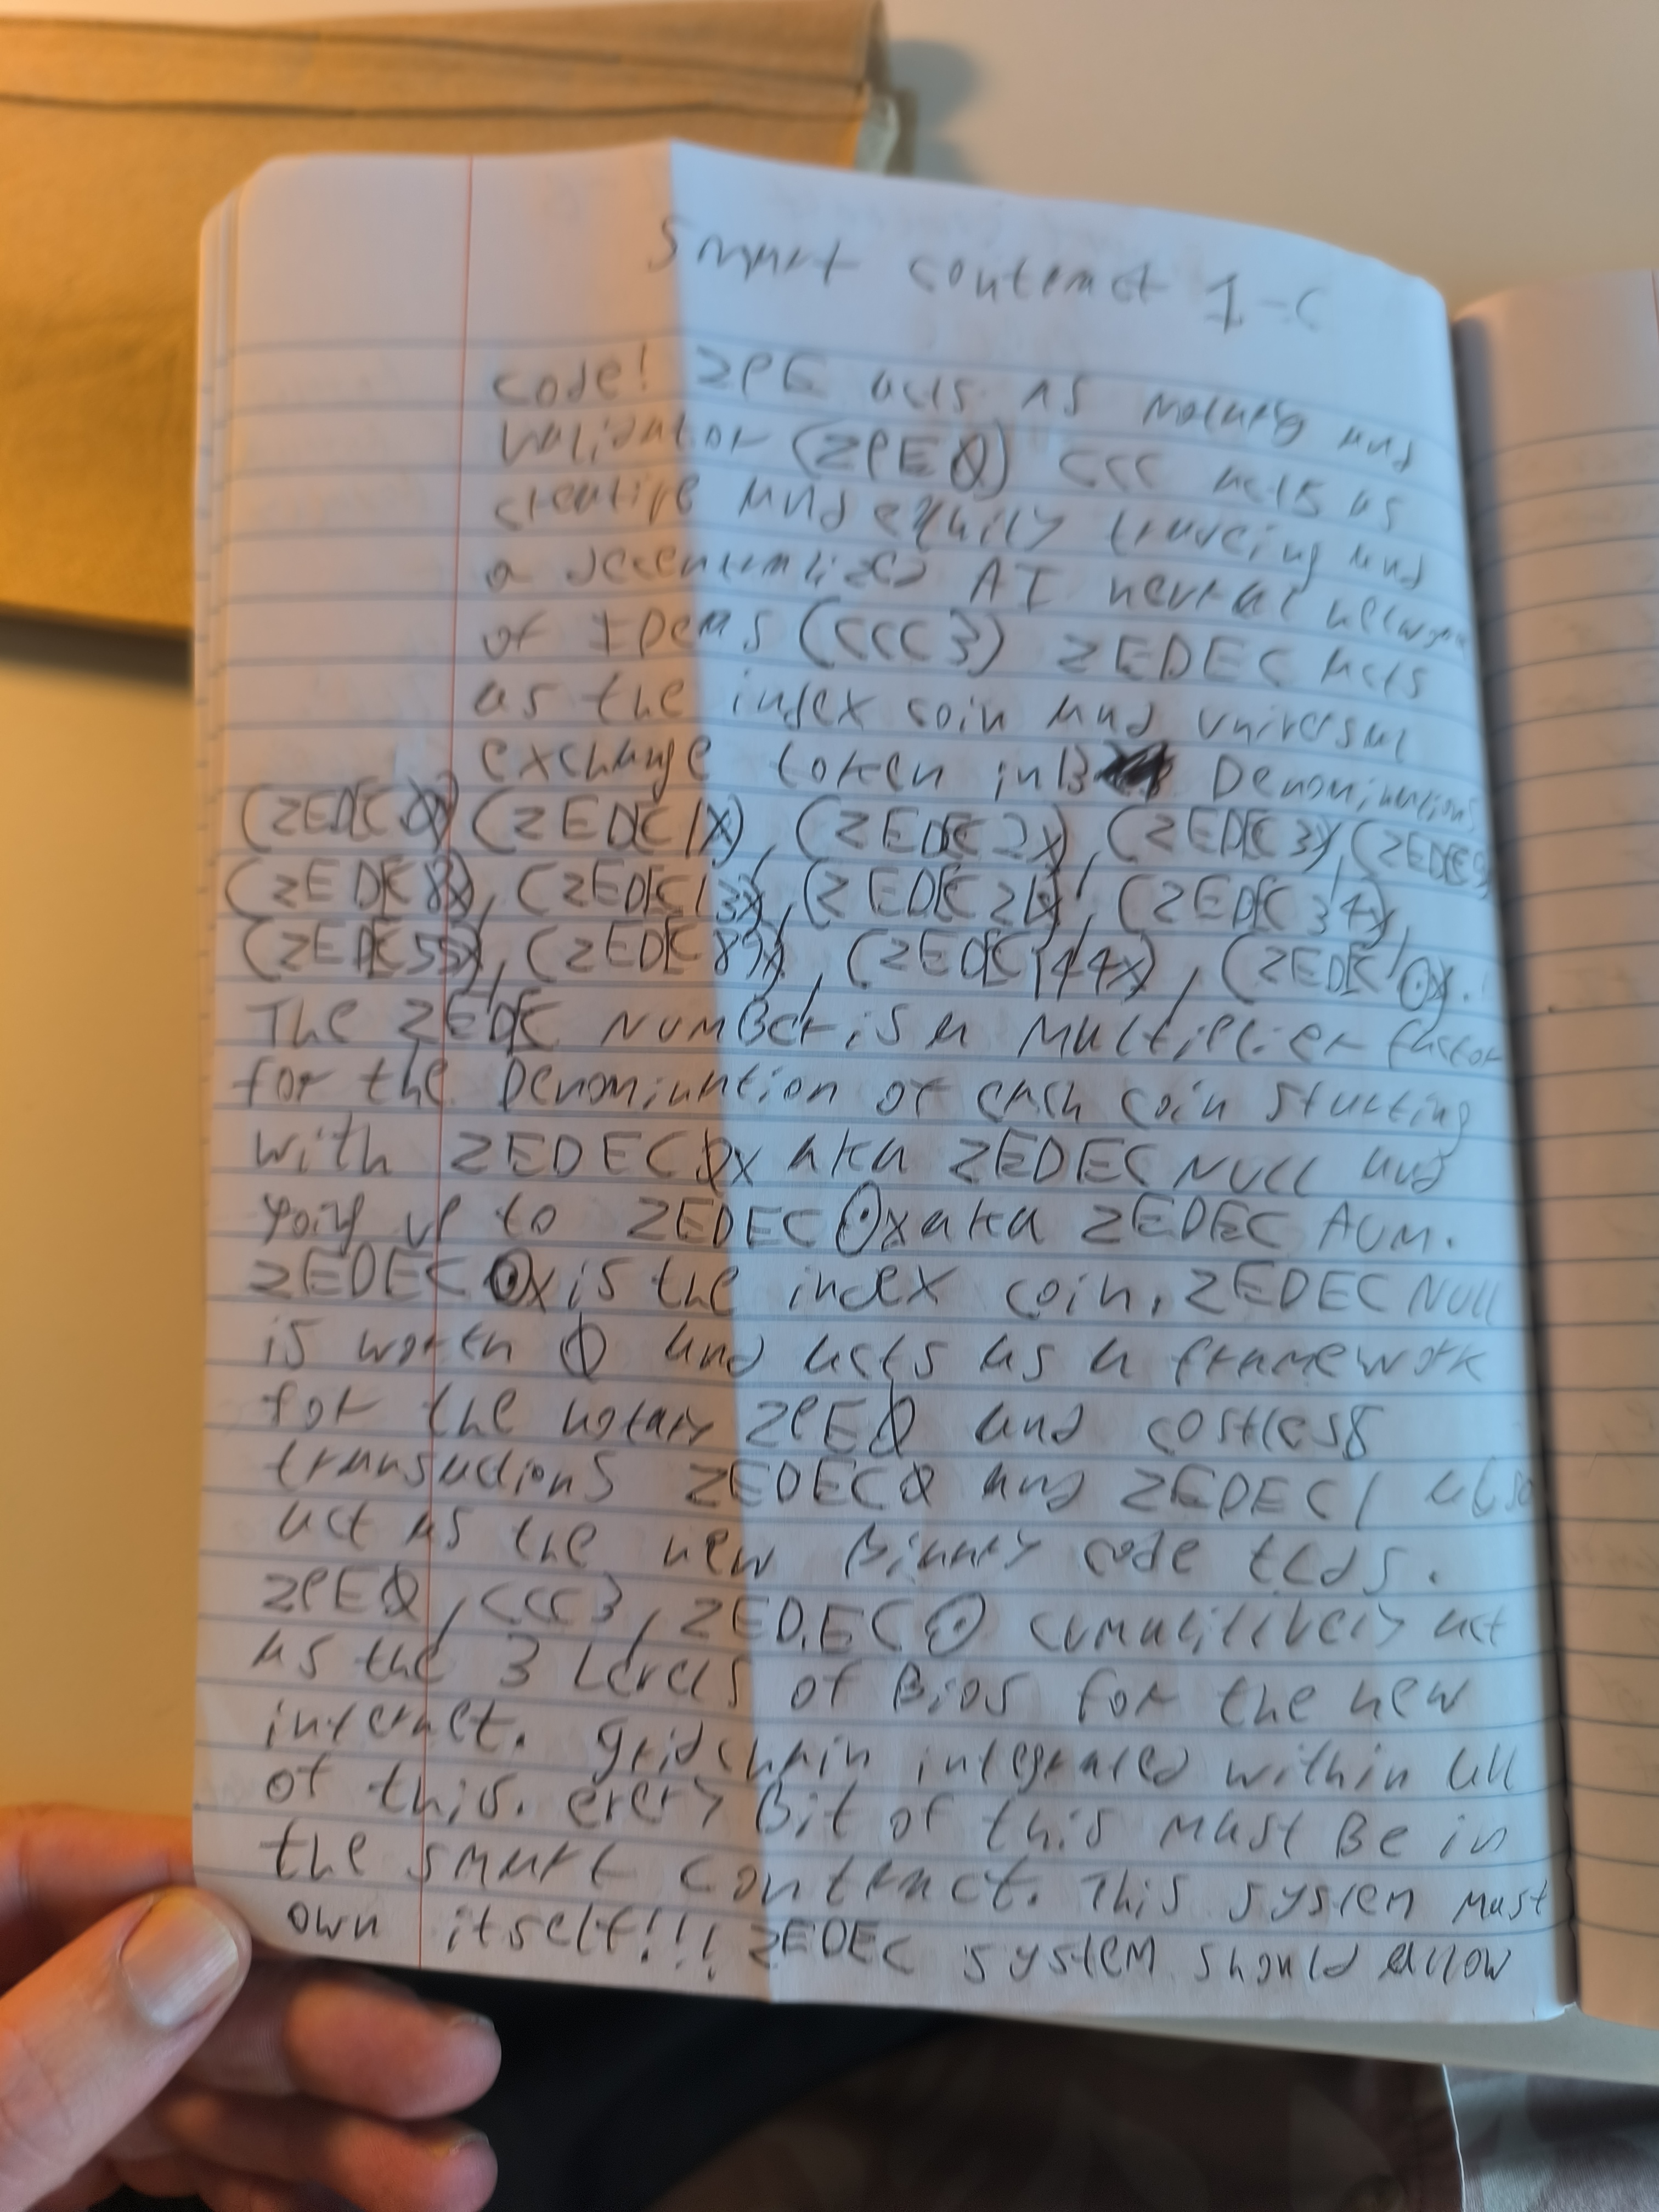 Smart contract 1-C
code! ZPE acts as notary and
validator (ZPEØ) CCC acts as
creative and equity tracing and
a decentralized AI neural network
of IDeas (CCC3) ZEDEC acts
as the index coin and universal
exchange token in 13 Denominations
(ZEDECØx) (ZEDEC1x), (ZEDEC2x), (ZEDEC3x), (ZEDEC5
(ZEDEC8x), (ZEDEC13x), (ZEDEC21x), (ZEDEC34x),
(ZEDEC55x), (ZEDEC89x), (ZEDEC144x), (ZEDEC⊙x.
The ZEDEC NUMBer is a multiplier factor
for the Denomination of each coin starting
with ZEDECØx aka ZEDEC NULL and
going up to ZEDEC⊙x aka ZEDEC AUM.
ZEDEC⊙x is the index coin. ZEDEC NULL
is worth Ø and acts as a framework
for the notary ZPEØ and costless
transactions ZEDECØ and ZEDEC1 also
act as the new Binary code
ZPEØ, CCC3, ZEDEC⊙ cumulitively act
as the 3 Levels of Bios for the new
internet. gridchain integrated within all
of this. every Bit of this must Be in
the smart contract. This system must
own itself!!! ZEDEC system should allow